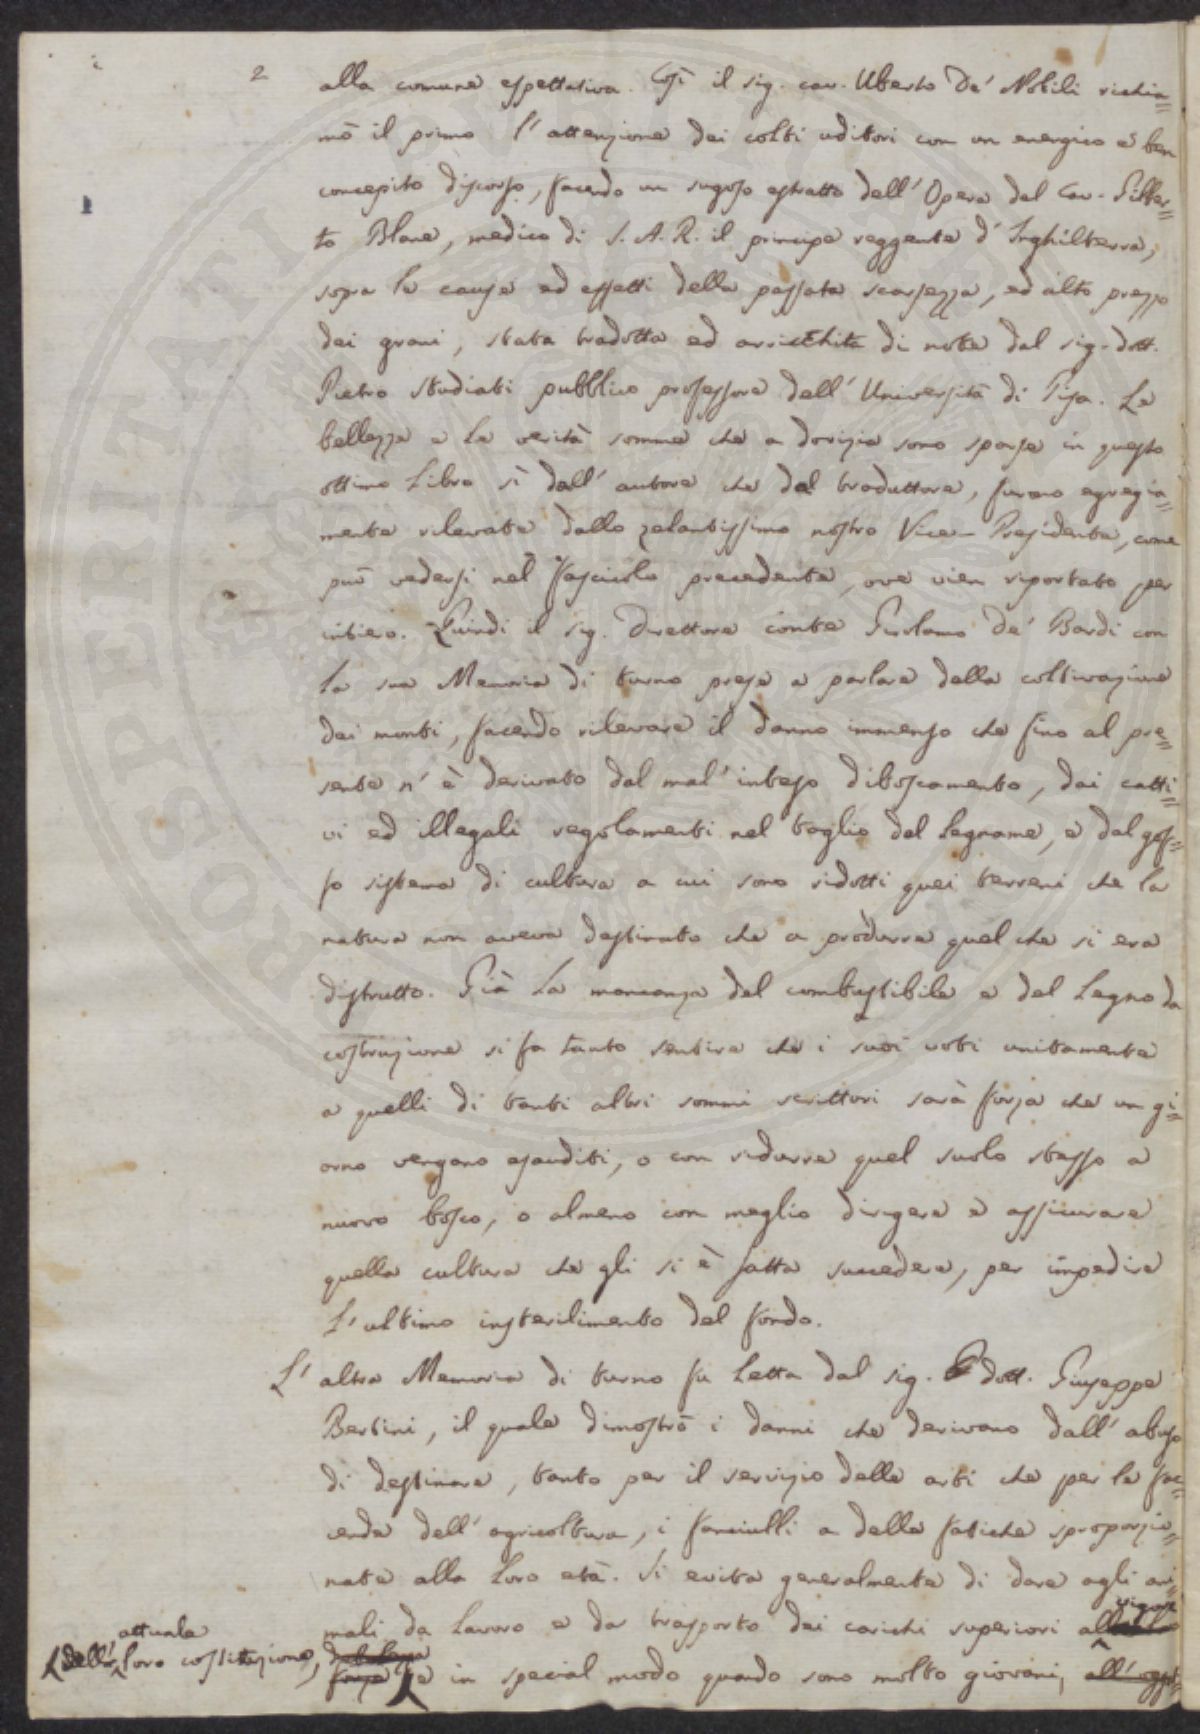 2
alla comune espettativa. Così il sig. cav. Uberto de' Nobili richia=
mò il primo l'attenzione dei colti uditori con un energico e ben
concepito discorso, facendo un sugoso estratto dell'Opera del Cav. Gilber=
to Blane, medico di S. A. R. il principe reggente d'Inghilterra,
sopra le cause ed effetti della passata scarsezza, ed alto prezzo
dei grani, stata tradotta ed arricchita di note dal sig. dott.
Pietro Studiati pubblico professore dell'Università di Pisa. Le
bellezze e le verità somme che a dovizia sono sparse in questo
ottimo Libro sì dall'autore che dal traduttore, furono egregia=
mente rilevate dallo zelantissimo nostro Vice-Presidente, come
può vedersi nel Fascicolo precedente, ove vien riportato per
intiero. Quindi il sig. Direttore conte Girolamo de' Bardi con
la sua Memoria di turno prese a parlare della coltivazione
dei monti, facendo rilevare il danno immenso che fino al pre=
sente n'è derivato dal mal'inteso diboscamento, dai catti=
vi ed illegali regolamenti nel taglio del legname, e dal gof=
fo sistema di cultura a cui sono ridotti quei terreni che la
natura non aveva destinato che a produrre quel che si era
distrutto. Già la mancanza del combustibile e del legno da
costruzione si fa tanto sentire che i suoi voti unitamente
a quelli di tanti altri sommi scrittori sarà forza che un gi=
orno vengano esauditi, o con ridurre quel suolo stesso a
nuovo bosco, o almeno con meglio dirigere e assicurare
quella cultura che gli si è fatta succedere, per impedire
l'ultimo insterilimento del fondo.
L'altra Memoria di turno fu letta dal sig. dott. Giuseppe
Bertini, il quale dimostrò i danni che derivano dall'abuso
di destinare, tanto per il servizio delle arti che per le fac=
cende dell'agricoltura, i fanciulli a delle fatiche sproporzio=
nate alla loro età. Si evita generalmente di dare agli ani=
vigore
mali da lavoro e da trasporto dei carichi superiori al
attuale
della loro costituzione,
forza e in special modo quando sono molto giovani, all'ogget=